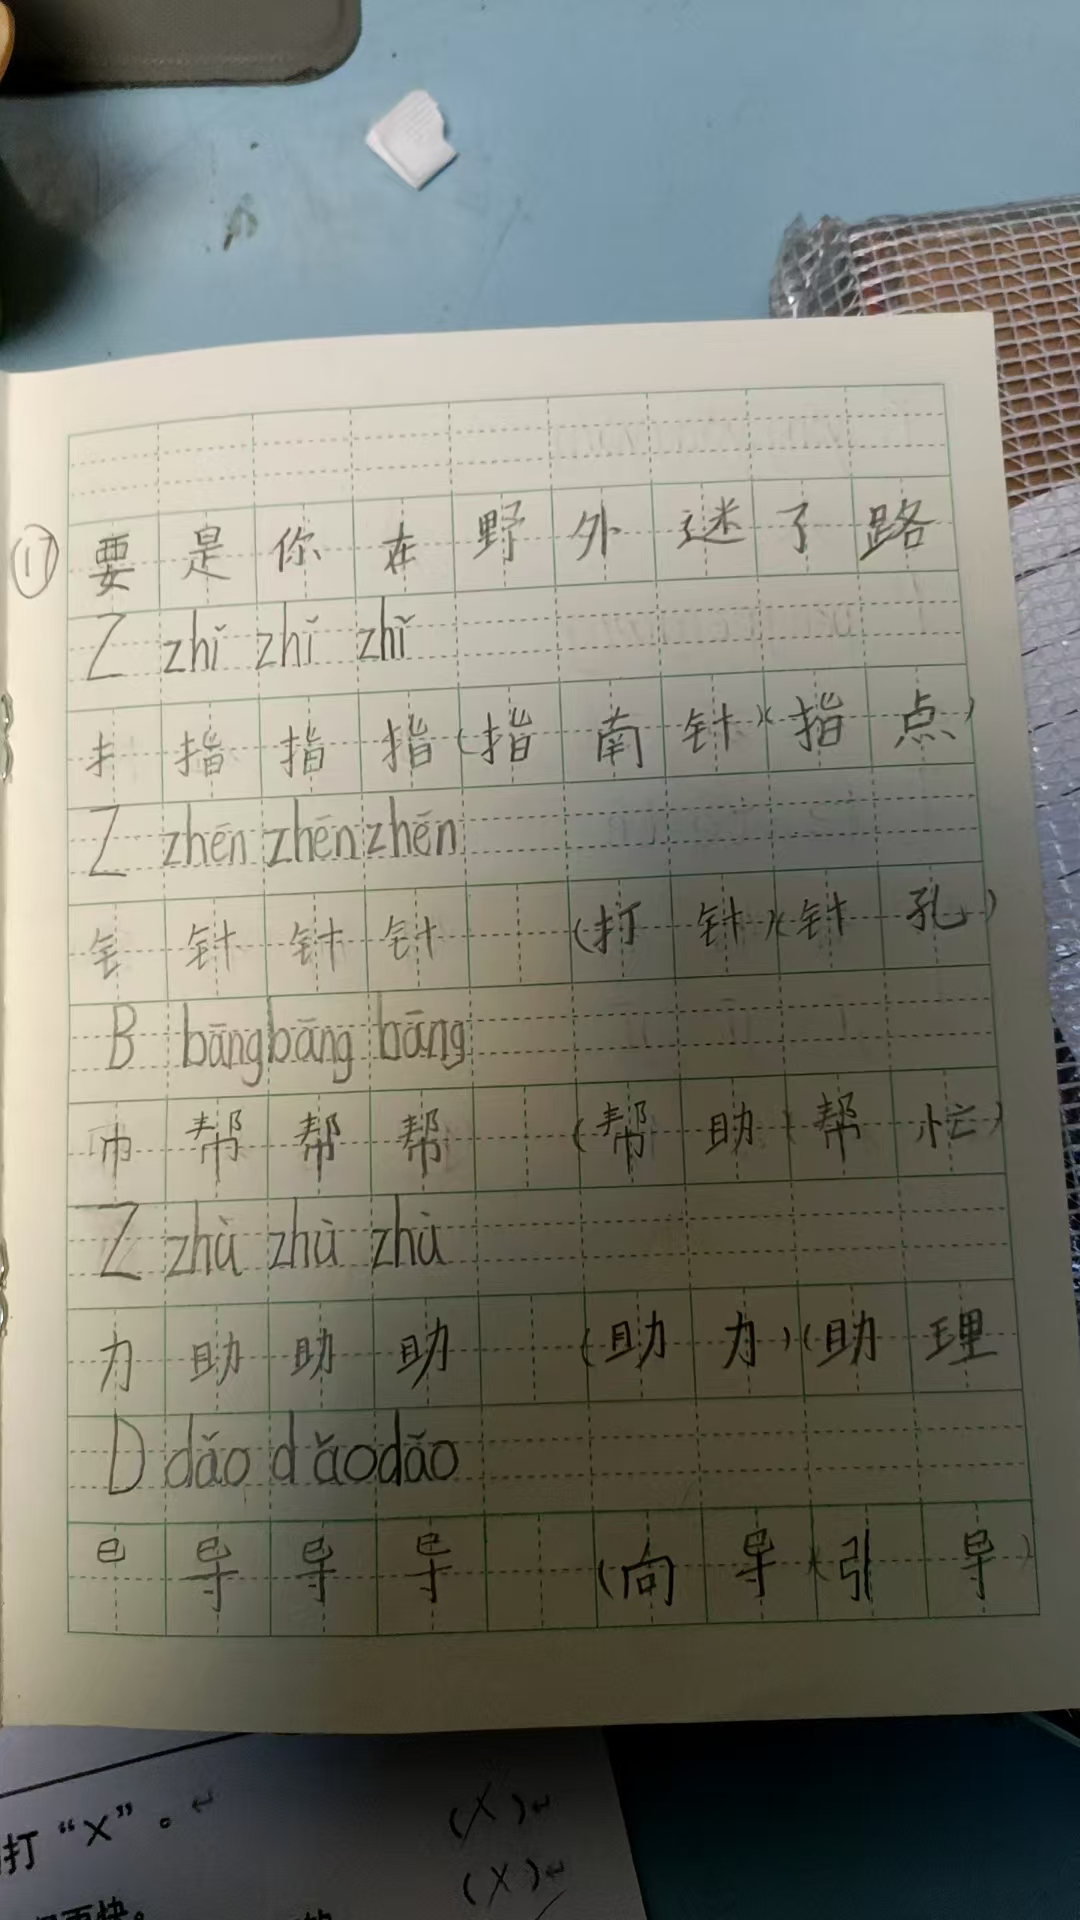 ⑰ 要是你在野外迷了路
Z zhǐ zhǐ zhǐ
扌 指 指 指 (指南针)(指点)
Z zhēn zhēn zhēn
钅 针 针 针 (打针)(针孔)
B bāng bāng bāng
巾 帮 帮 帮 (帮助)(帮忙)
Z zhù zhù zhù
力 助 助 助 (助力)(助理)
D dǎo dǎo dǎo
巳 导 导 导 (向导)(引导)
打“X”。↵
(X)↵
(X)↵
更快。